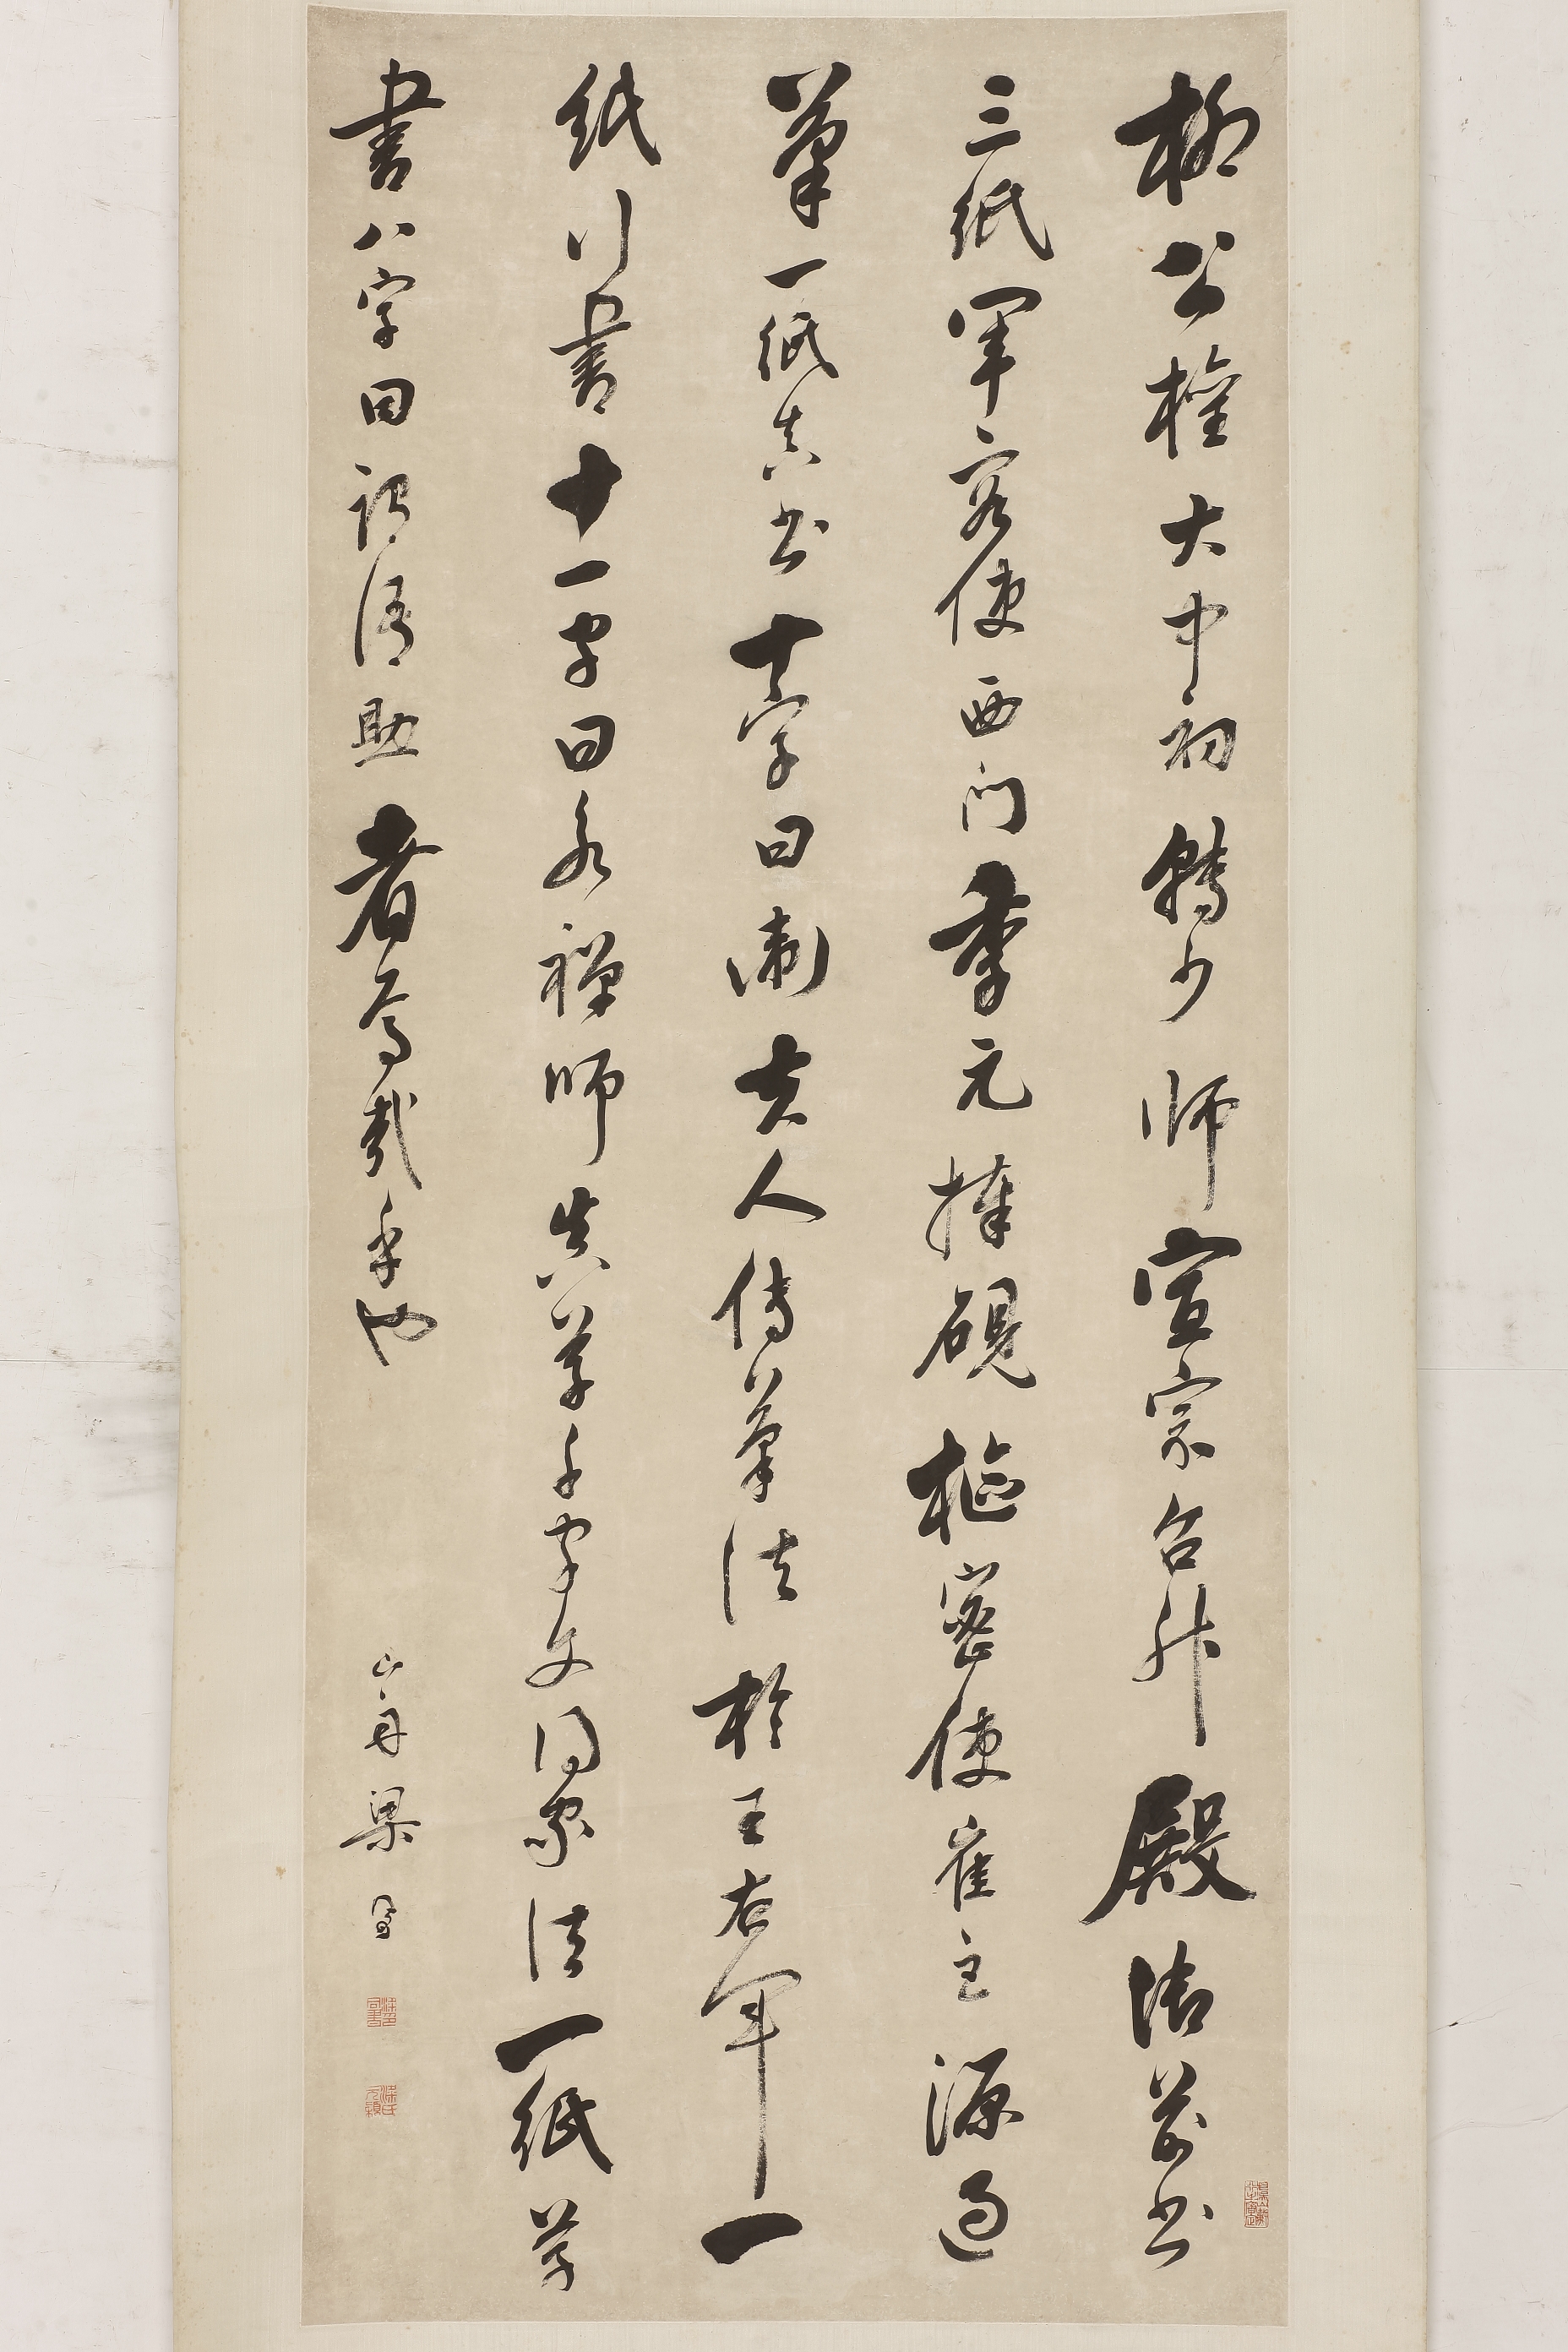 柳公權大中初轉少師宣宗召升殿御前書
三紙軍容使西門季元捧硯樞密使崔巨源過
筆一紙真書十字曰衛夫人傳筆法於王右軍一
紙行書十一字曰永禪師真草千字文得家法一紙草
書八字曰謂語助者焉哉乎也
山舟梁同書
梁氏元穎